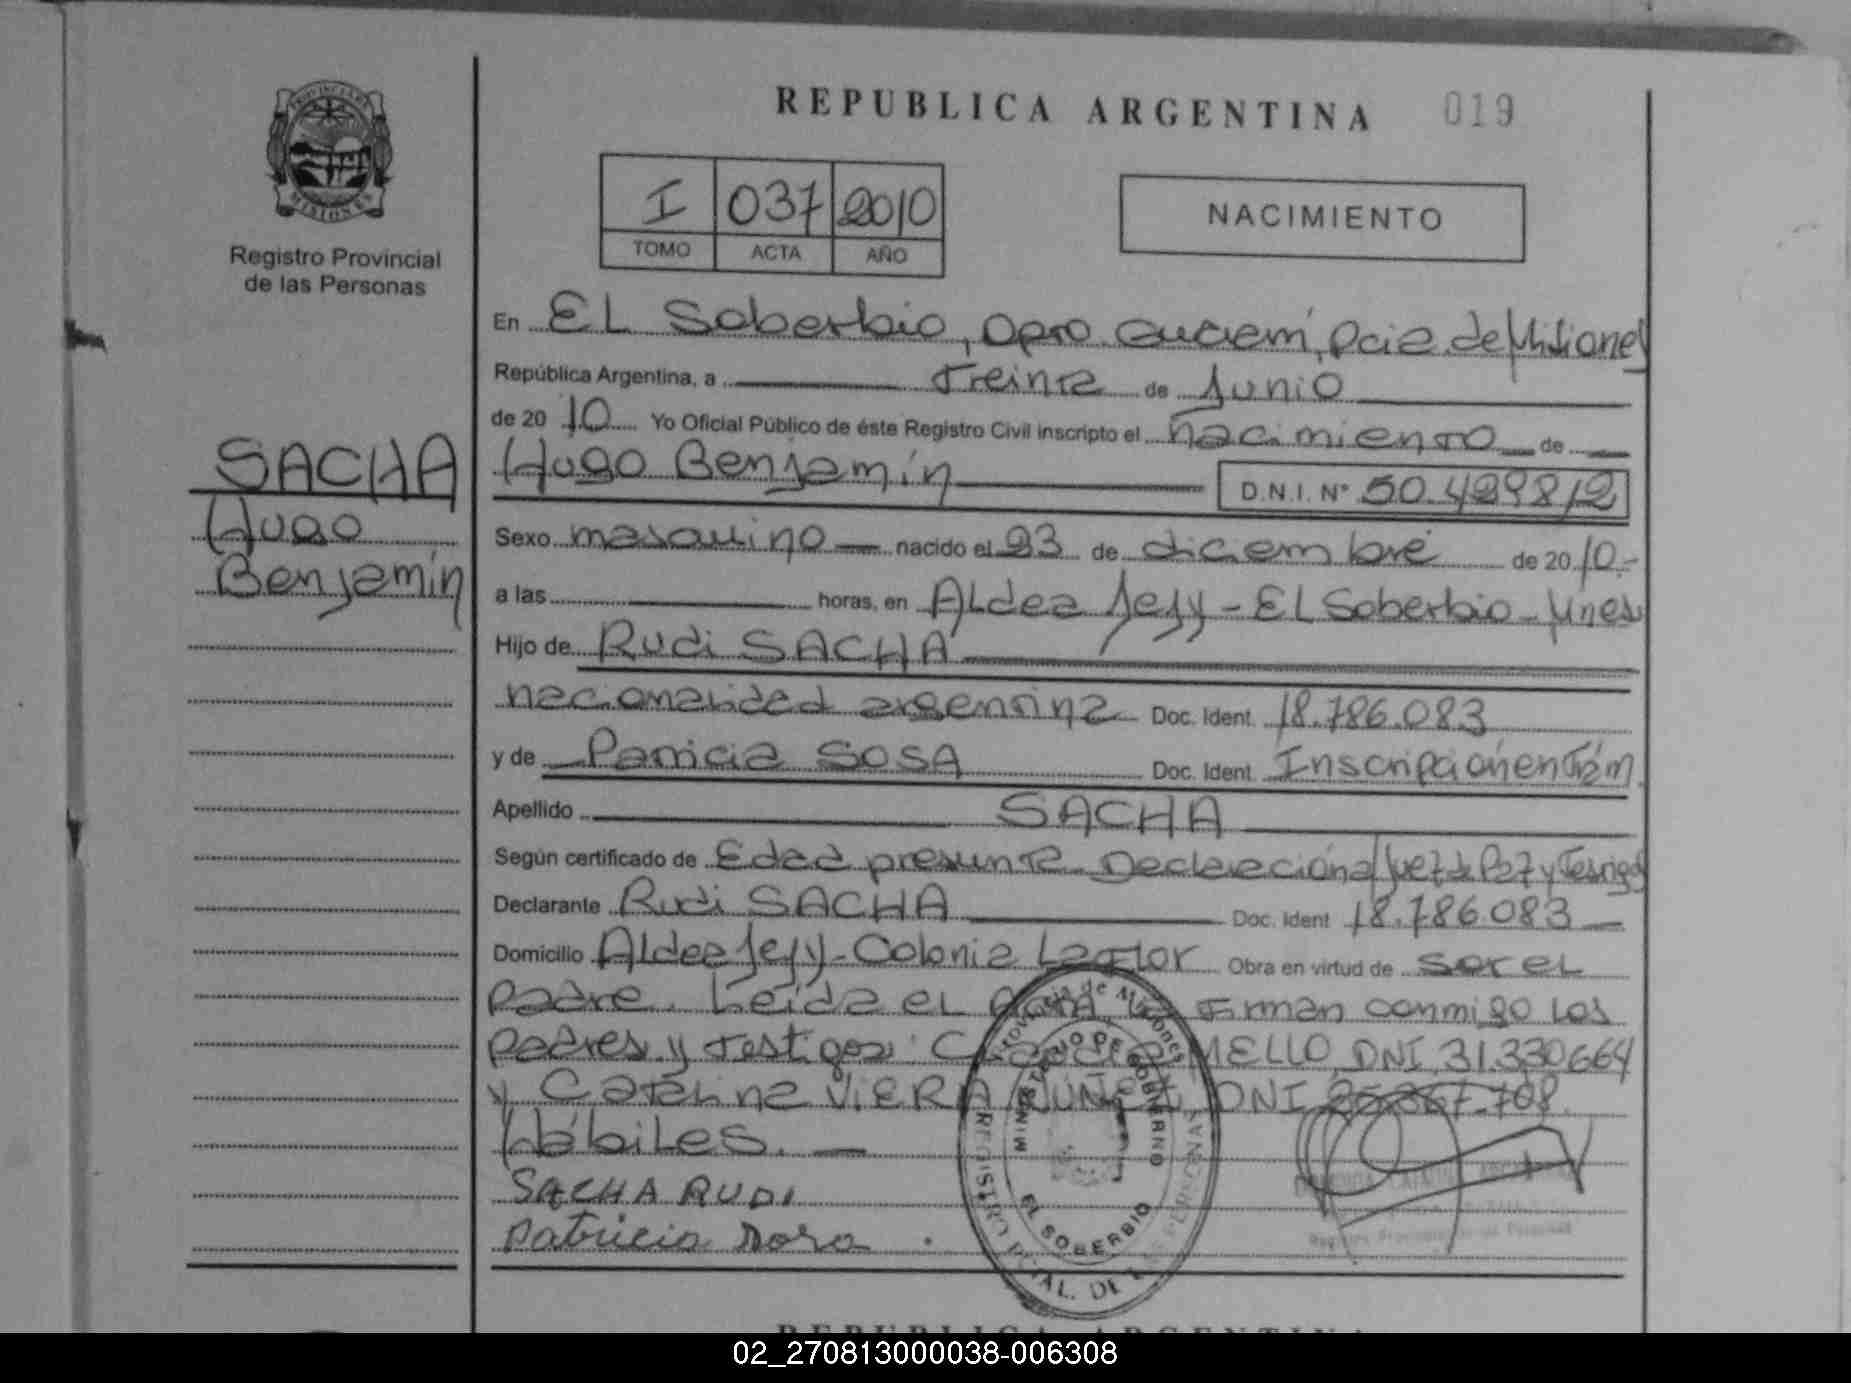 REPUBLICA ARGENTINA 019
PROVINCIA DE
MISIONES
Registro Provincial
de las Personas
I 037 2010
TOMO ACTA AÑO
NACIMIENTO
En EL Soberbio, Dpto. Guaraní, Pcia. de Misiones
República Argentina, a Treinta de Junio
de 20 10 Yo Oficial Público de éste Registro Civil inscripto el nacimiento de
SACHA
Hugo
Benjamín
Hugo Benjamín D.N.I. Nº 50.429812
Sexo masculino nacido el 23 de diciembre de 20 10.-
a las horas, en ALdea Jejy - EL Soberbio - Mnes
Hijo de Rudi SACHA
nacionalidad argentina Doc. Ident. 18.786.083
y de Patricia SOSA Doc. Ident. Inscripción en Trám.
Apellido SACHA
Según certificado de Edad presunta. Declaración a/ Juez de Paz y Testigos
Declarante Rudi SACHA Doc. Ident 18.786.083
Domicilio ALdea Jejy - Colonia La FLor Obra en virtud de ser eL
padre. Leída eL Acta, La Firman conmigo Los
padres y testigos: MELLO, DNI 31.330664
y CataLina VIERA NUÑEZ, DNI
HábiLes.
SACHA RUDI
Patricia Sosa
Provincia de Misiones
MINISTERIO DE GOBIERNO
EL SOBERBIO
REGISTRO PCIAL. DE LAS PERSONAS
REPUBLICA ARGENTINA
02_270813000038-006308